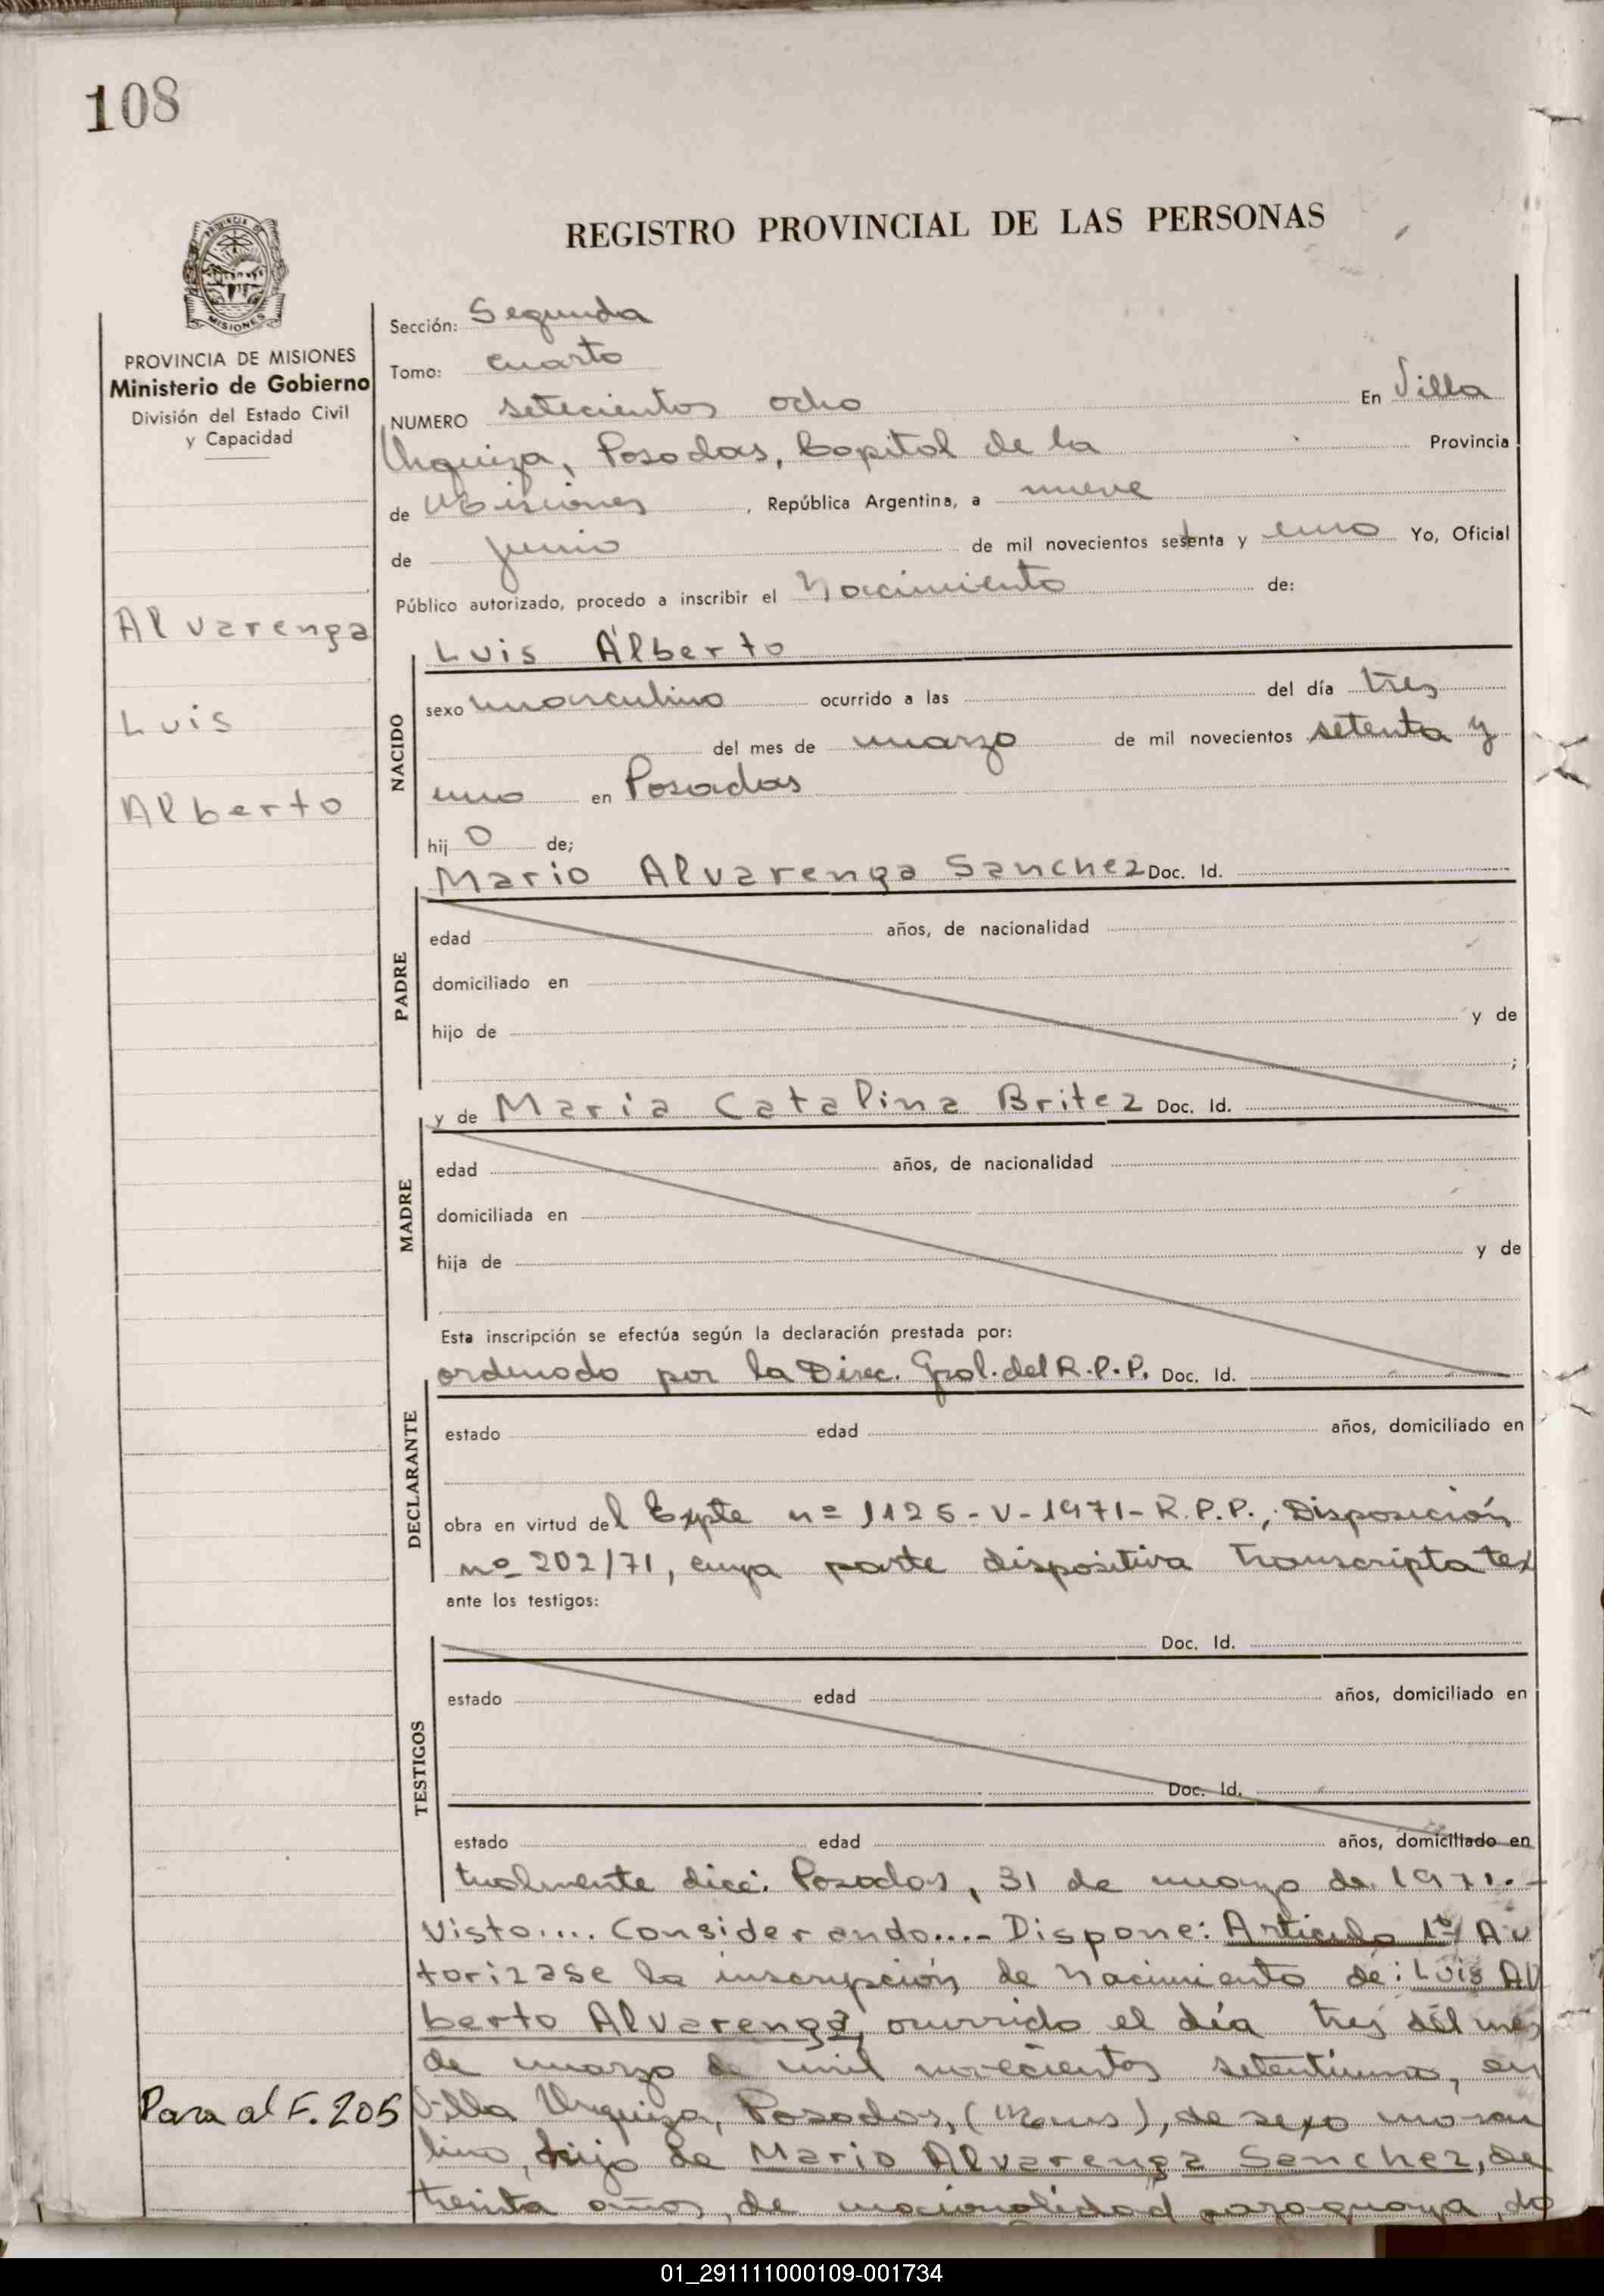 108
REGISTRO PROVINCIAL DE LAS PERSONAS
PROVINCIA DE MISIONES
MISIONES
PROVINCIA DE MISIONES
Ministerio de Gobierno
División del Estado Civil
y Capacidad
Alvarenga
Luis
Alberto
Sección: Segunda
Tomo: cuarto
NUMERO setecientos ocho En Villa
Urquiza, Posadas, Capital de la Provincia
de Misiones, República Argentina, a nueve
de junio de mil novecientos setenta y uno Yo, Oficial
Público autorizado, procedo a inscribir el Nacimiento de:
NACIDO
Luis Alberto
sexo masculino ocurrido a las del día tres
del mes de marzo de mil novecientos setenta y
uno en Posadas
hij o de;
PADRE
Mario Alvarenga Sanchez Doc. Id.
edad años, de nacionalidad
domiciliado en
hijo de y de
;
MADRE
y de Maria Catalina Britez Doc. Id.
edad años, de nacionalidad
domiciliada en
hija de y de
Esta inscripción se efectúa según la declaración prestada por:
DECLARANTE
ordenado por la Direc. Gral. del R.P.P. Doc. Id.
estado edad años, domiciliado en
obra en virtud del Expte nº 1125-V-1971-R.P.P., Disposición
nº 202/71, cuya parte dispositiva transcripta tex
ante los testigos:
TESTIGOS
Doc. Id.
estado edad años, domiciliado en
Doc. Id.
estado edad años, domiciliado en
tualmente dice: Posadas, 31 de marzo de 1971.-
Visto.... Considerando.... Dispone: Articulo 1º/ Au
torizase la inscripción de nacimiento de: Luis Al
berto Alvarenga, ocurrido el día tres del mes
de marzo de mil novecientos setentiuno, en
Villa Urquiza, Posadas, (Mnes), de sexo mascu
lino, hijo de Mario Alvarenga Sanchez, de
treinta años, de nacionalidad paraguaya, do
Pasa al F. 205
01_291111000109-001734